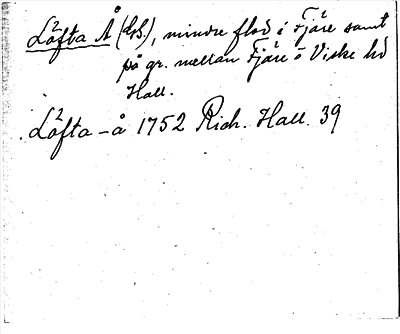 Löfta Å (GS.), mindre flod i Fjäre samt
på gr. mellan Fjäre o Viske hd
Hall.
Löfta-å 1752 Rich. Hall. 39